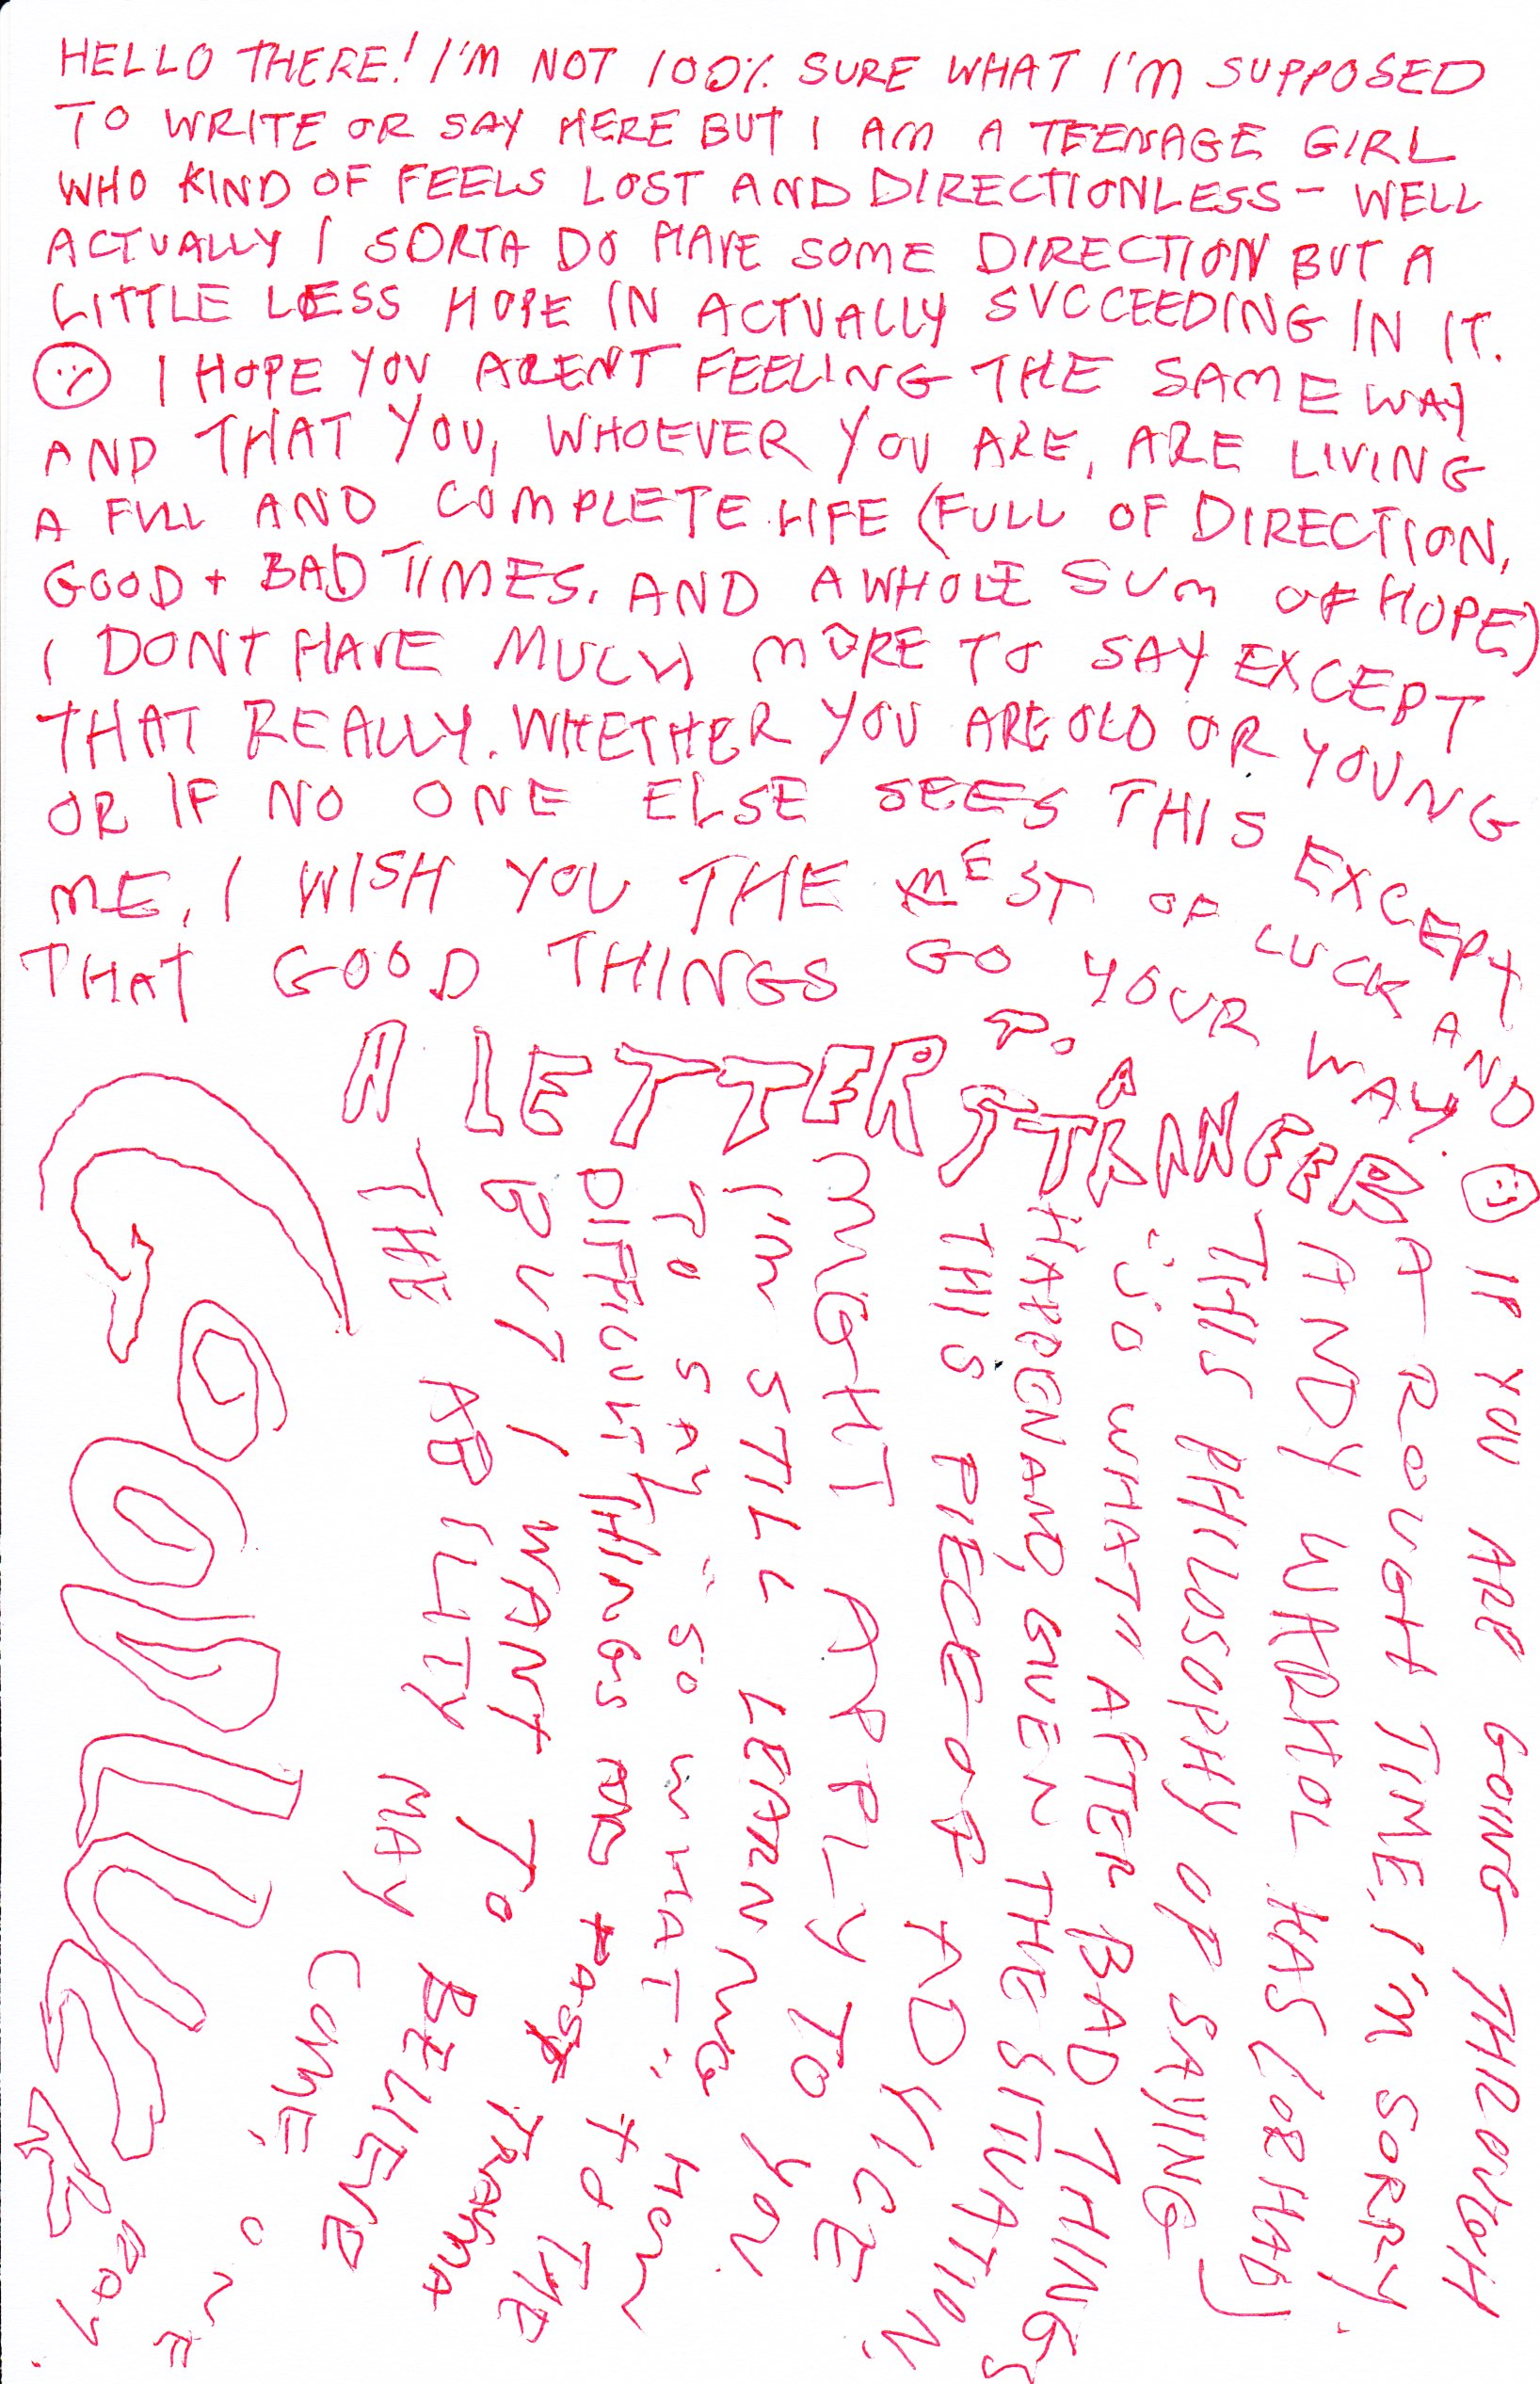 HELLO THERE! I'M NOT 100% SURE WHAT I'M SUPPOSED
TO WRITE OR SAY HERE BUT I AM A TEENAGE GIRL
WHO KIND OF FEELS LOST AND DIRECTIONLESS - WELL
ACTUALLY I SORTA DO HAVE SOME DIRECTION BUT A
LITTLE LESS HOPE IN ACTUALLY SUCCEEDING IN IT.
I HOPE YOU ARENT FEELING THE SAME WAY
AND THAT YOU, WHOEVER YOU ARE, ARE LIVING
A FULL AND COMPLETE LIFE (FULL OF DIRECTION,
GOOD + BAD TIMES, AND A WHOLE SUM OF HOPE)
I DONT HAVE MUCH MORE TO SAY EXCEPT
THAT REALLY. WHETHER YOU ARE OLD OR YOUNG
OR IF NO ONE ELSE SEES THIS EXCEPT
ME, I WISH YOU THE BEST OF LUCK AND
THAT GOOD THINGS GO YOUR WAY.
A LETTER TO A STRANGER
IF YOU ARE GOING THROUGH
A ROUGH TIME, I'M SORRY.
ANDY WARHOL HAS (OR HAD)
THIS PHILOSOPHY OF SAYING
"SO WHAT" AFTER BAD THINGS
HAPPEN AND GIVEN THE SITUATION,
THIS PIECE OF ADVICE
MIGHT APPLY TO YOU.
I'M STILL LEARNING HOW
TO SAY "SO WHAT" TO THE
DIFFICULT THINGS AND PAST TRAUMA
BUT I WANT TO BELIEVE
THE ABILITY MAY COME.
ONE DAY.